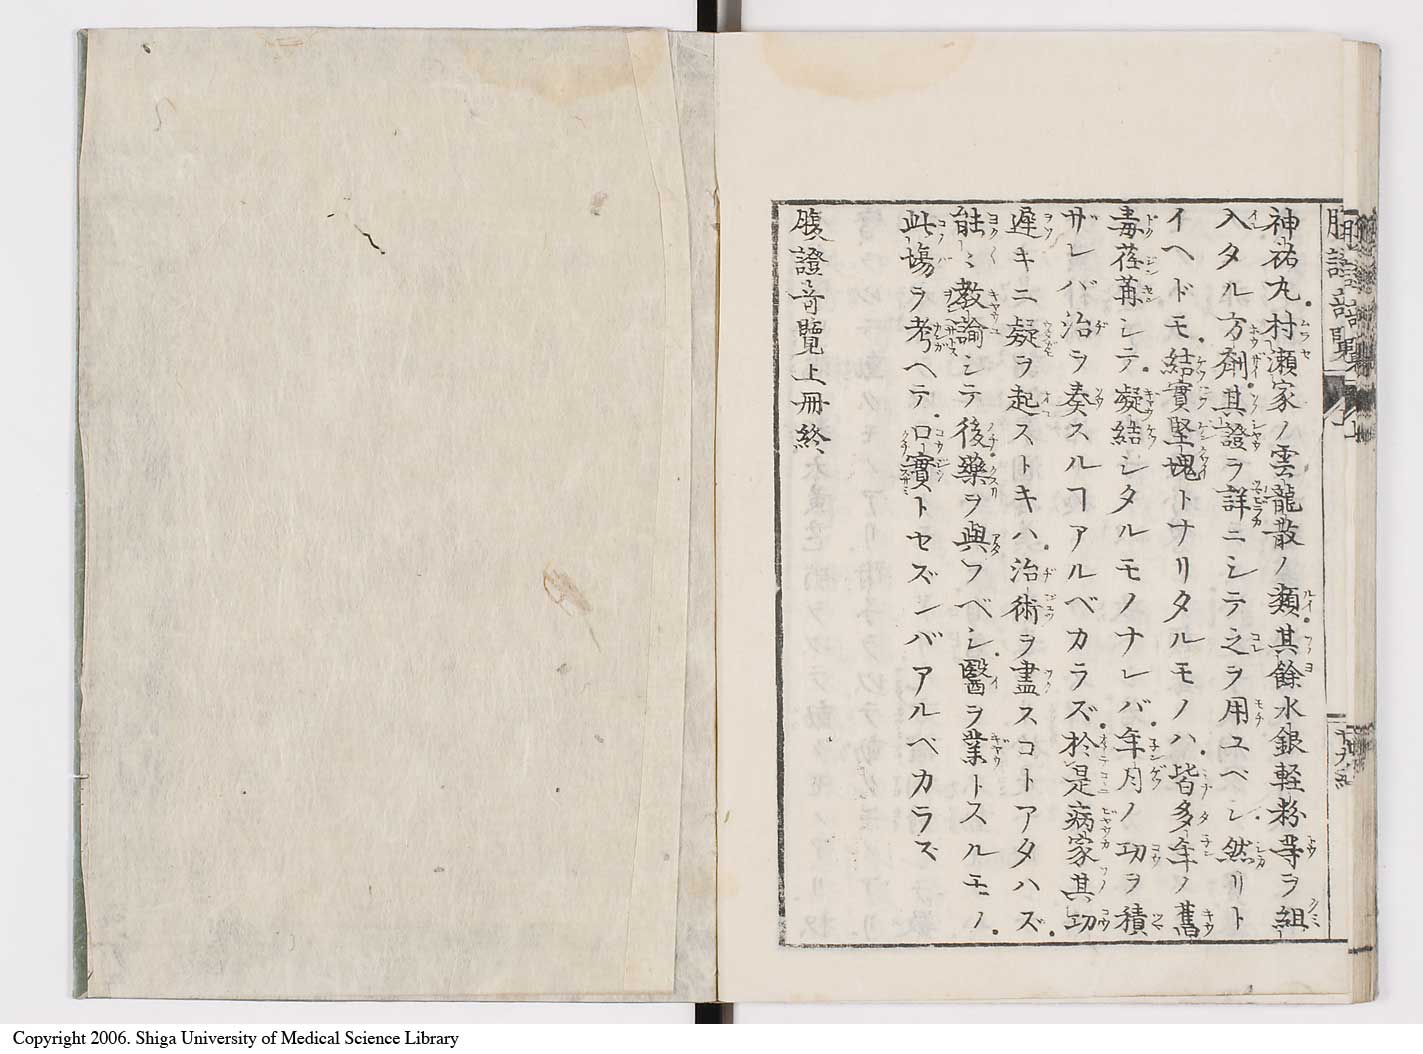 神祐丸。村瀬家ノ雲龍散ノ類。其餘水銀軽粉等ヲ組
入タル方剤。其證ヲ詳ニシテ之ヲ用ユベシ。然リト
イヘドモ。結實堅塊トナリタルモノハ。皆多年ノ舊
毒荏苒シテ。凝結シタルモノナレバ。年月ノ功ヲ積
ザレバ治ヲ奏スルヿアルベカラズ。於是病家其功
遅キニ凝ヲ起ストキハ。治術ヲ盡スコトアタハズ。
能ミ教諭シテ後藥ヲ與フベシ。醫ヲ業トスルモノ。
此塲ヲ考ヘテ。口實トセズンバアルベカラス
腹證奇覽上冊終
Copyright 2006. Shiga University of Medical Science Library